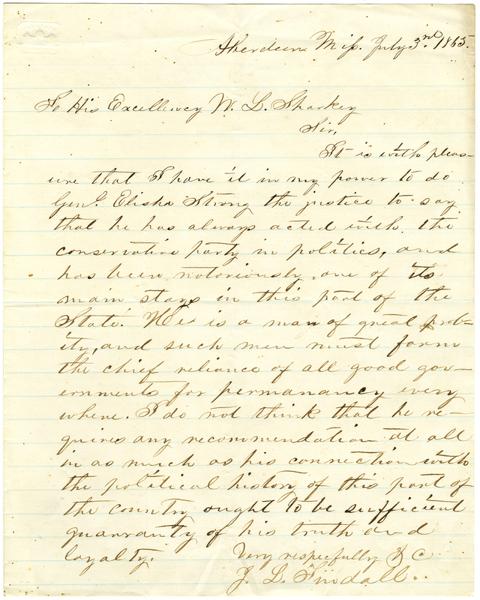 Aberdeen Miss. July 3rd. 1865.
To His Excellency W. L. Sharkey
Sir,
It is with pleas-
ure that I have it in my power to do
Genl. Elisha Strong the justice to say
that he has always acted with the
conservative party in politics, and
has been, notoriously, one of its
main stays in this part of the
State. He is a man of great prob-
ity, and such men must form
the chief reliance of all good gov-
ernments for permanancy every
where. I do not think that he re-
quires any recommendation at all
in as much as his connection with
the political history of this part of
the country ought to be sufficient
guaranty of his truth and
loyalty.
Very respecfully &c
J. L. Tindall.